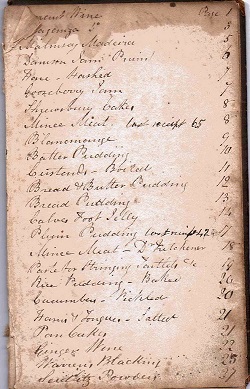 Currant Wine Page 1
3
Malmsey Madeira 5
Damson Jam Plain 6
Hare - Hashed 7
Gooseberry Jam 7
Shrewsbury Cakes 8
Mince Meat last receipt 65 8
Blamonouge 9
Batter Pudding 10
Custards - Boiled 11
Bread & Butter Pudding 12
Bread Pudding 13
Calves Foot Jelly 14
Plum Pudding last receipt 47 & 17
Mince Meat - Dr Kitchener 18
Paste for Stringing Tartlets &c 19
Rice Pudding - Baked 20
Cucumbers - Pickled 20
Hams & Tongues - Salted 21
Pan Cakes 21
Ginger Wine 22
Warrens Blacking 25
Seidlitz Powders 27